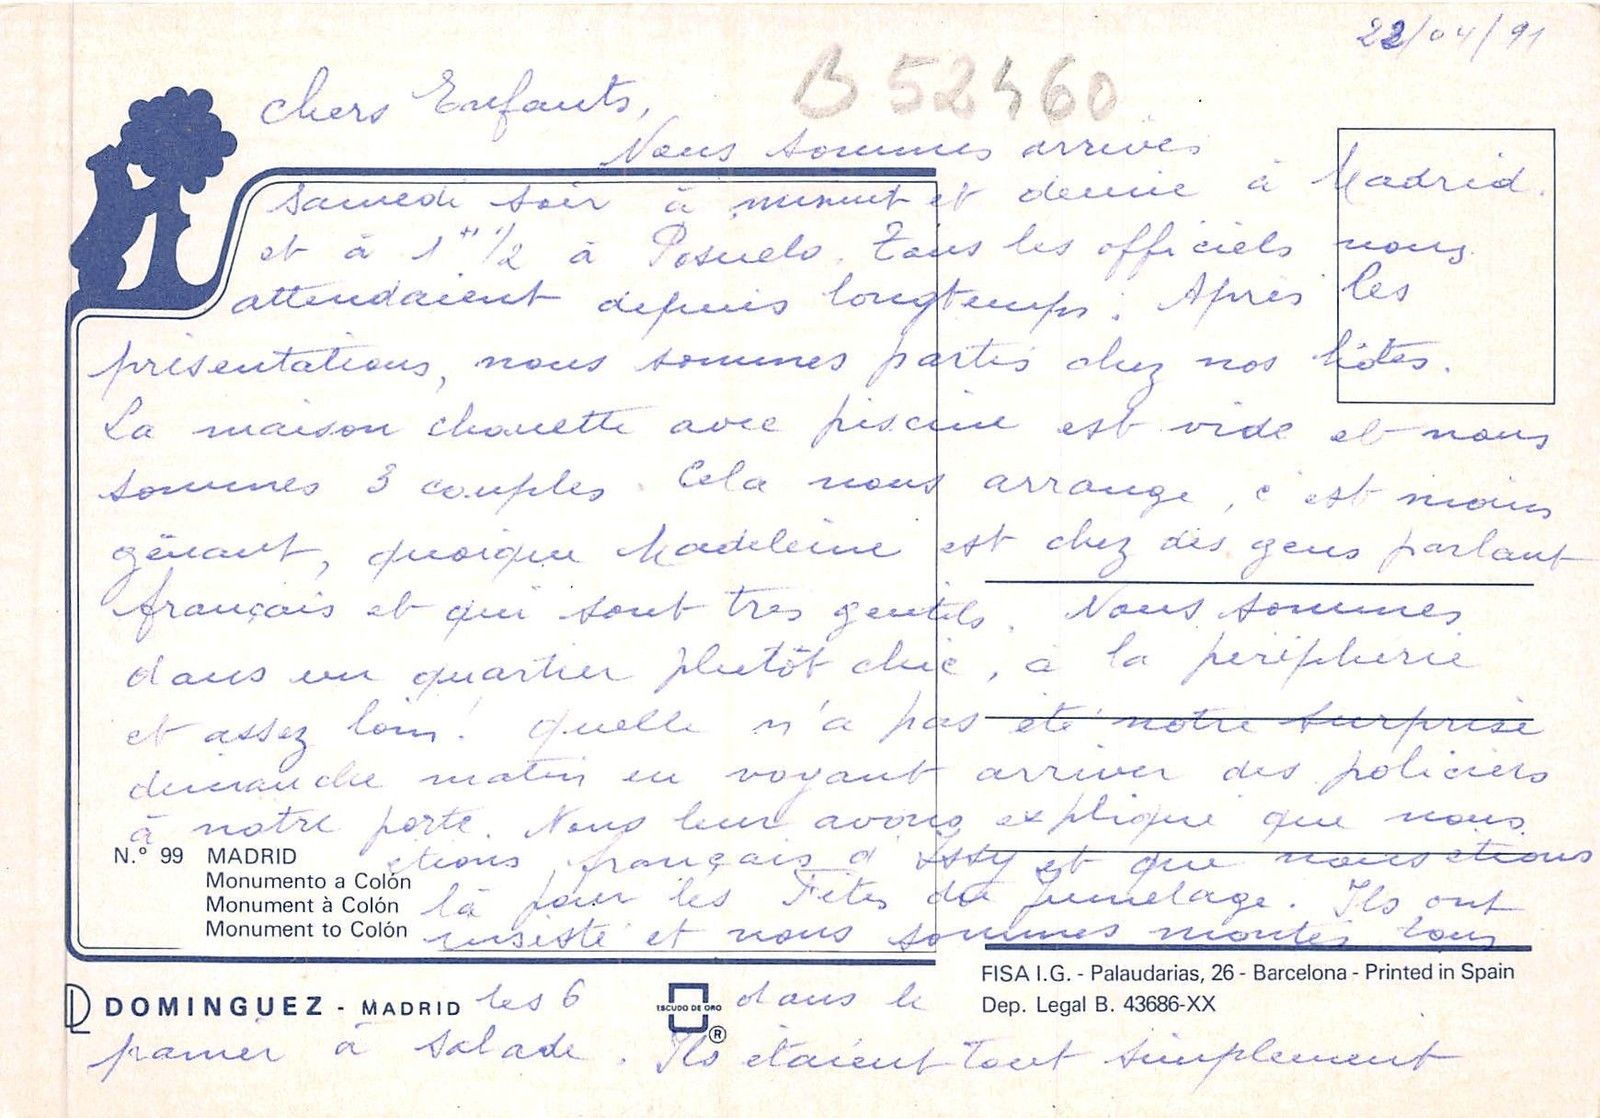 22/04/91
B 52460
Chers Enfants,
Nous sommes arrivés
samedi soir à minuit et demie à Madrid.
et à 1 H 1/2 à Posuelo. Tous les officiels nous
attendaient depuis longtemps. Après les
présentations, nous sommes partis chez nos hôtes.
La maison chouette avec piscine est vide et nous
sommes 3 couples. Cela nous arrange, c'est moins
gênant, quoique Madeleine est chez des gens parlant
français et qui sont très gentils. Nous sommes
dans un quartier plutôt chic, à la périphérie
et assez loin! Quelle n'a pas été notre surprise
dimanche matin en voyant arriver des policiers
à notre porte. Nous leur avons expliqué que nous
étions français d'Issy et que nous étions
là pour les Fêtes du Jumelage. Ils ont
insisté et nous sommes montés tous
les 6 dans le
panier à salade. Ils étaient tout simplement
N.º 99 MADRID
Monumento a Colón
Monument à Colón
Monument to Colón
DL DOMINGUEZ - MADRID
ESCUDO DE ORO ®
FISA I.G. - Palaudarias, 26 - Barcelona - Printed in Spain
Dep. Legal B. 43686-XX